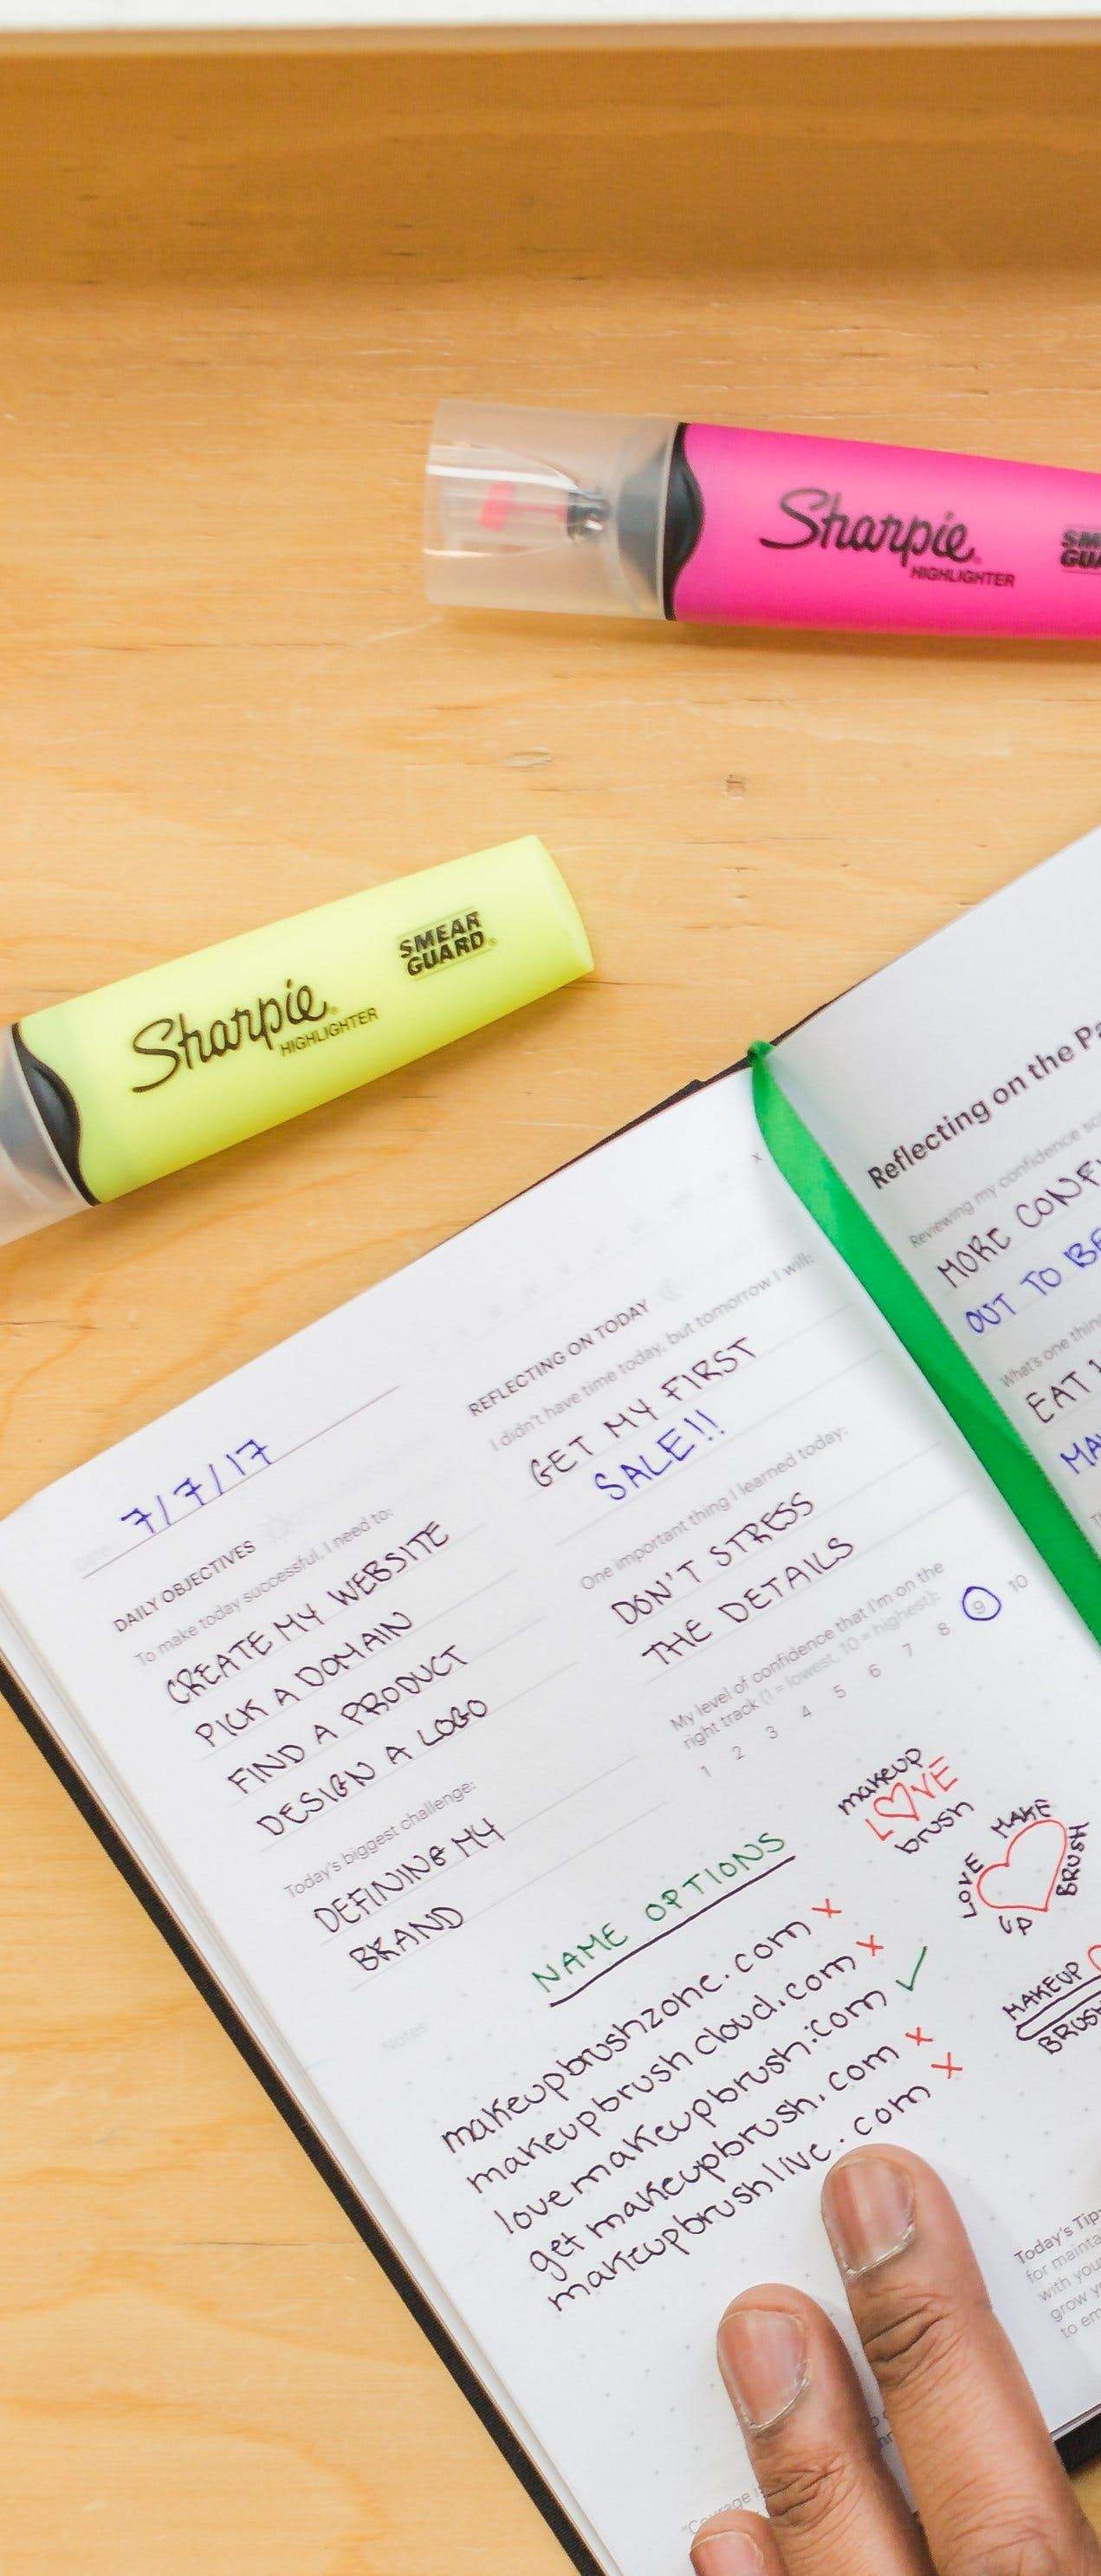 Sharpie
HIGHLIGHTER
Sharpie
HIGHLIGHTER
SMEAR
GUARD
7/7/17
DAILY OBJECTIVES
To make today successful, I need to:
CREATE MY WEBSITE
PICK A DOMAIN
FIND A PRODUCT
DESIGN A LOGO
Today's biggest challenge:
DEFINING MY
BRAND
Notes
REFLECTING ON TODAY
I didn't have time today, but tomorrow I will:
GET MY FIRST
SALE!!
One important thing I learned today:
DON'T STRESS
THE DETAILS
My level of confidence that I'm on the
right track (1 = lowest, 10 = highest):
1 2 3 4 5 6 7 8 9 10
NAME OPTIONS
makeupbrushzone.com x
makeupbrush cloud.com x
love makeupbrush.com ✓
get makeupbrush.com x
makeupbrushlive.com x
makeup
LOVE
brush
LOVE
MAKE
UP
BRUSH
MAKEUP
Reflecting on the
Reviewing my confidence
MORE
OUT TO
What's one
EAT
Today's
for
with
grow
to